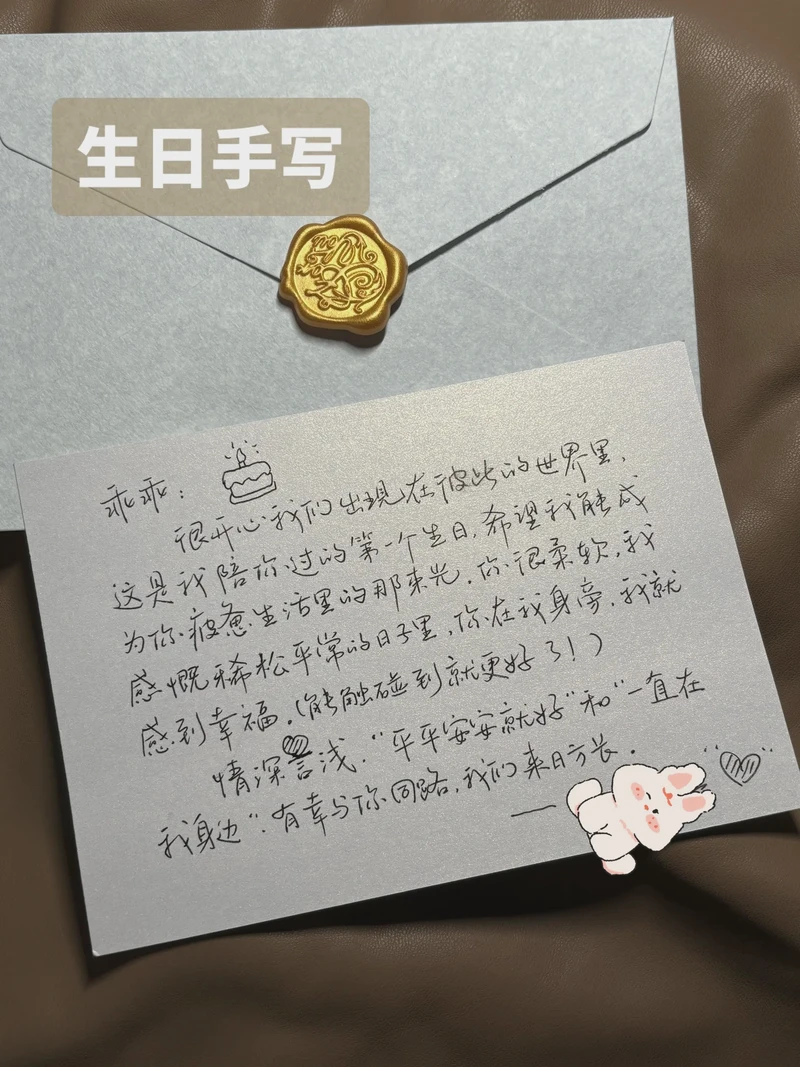 生日手写
乖乖：
很开心我们出现在彼此的世界里，
这是我陪你过的第一个生日，希望我能成
为你疲惫生活里的那束光，你很柔软，我
感慨稀松平常的日子里，你在我身旁，我就
感到幸福。（能触碰到就更好了！）
情深言浅，“平平安安就好”和“一直在
我身边”。有幸与你同路，我们来日方长。
——